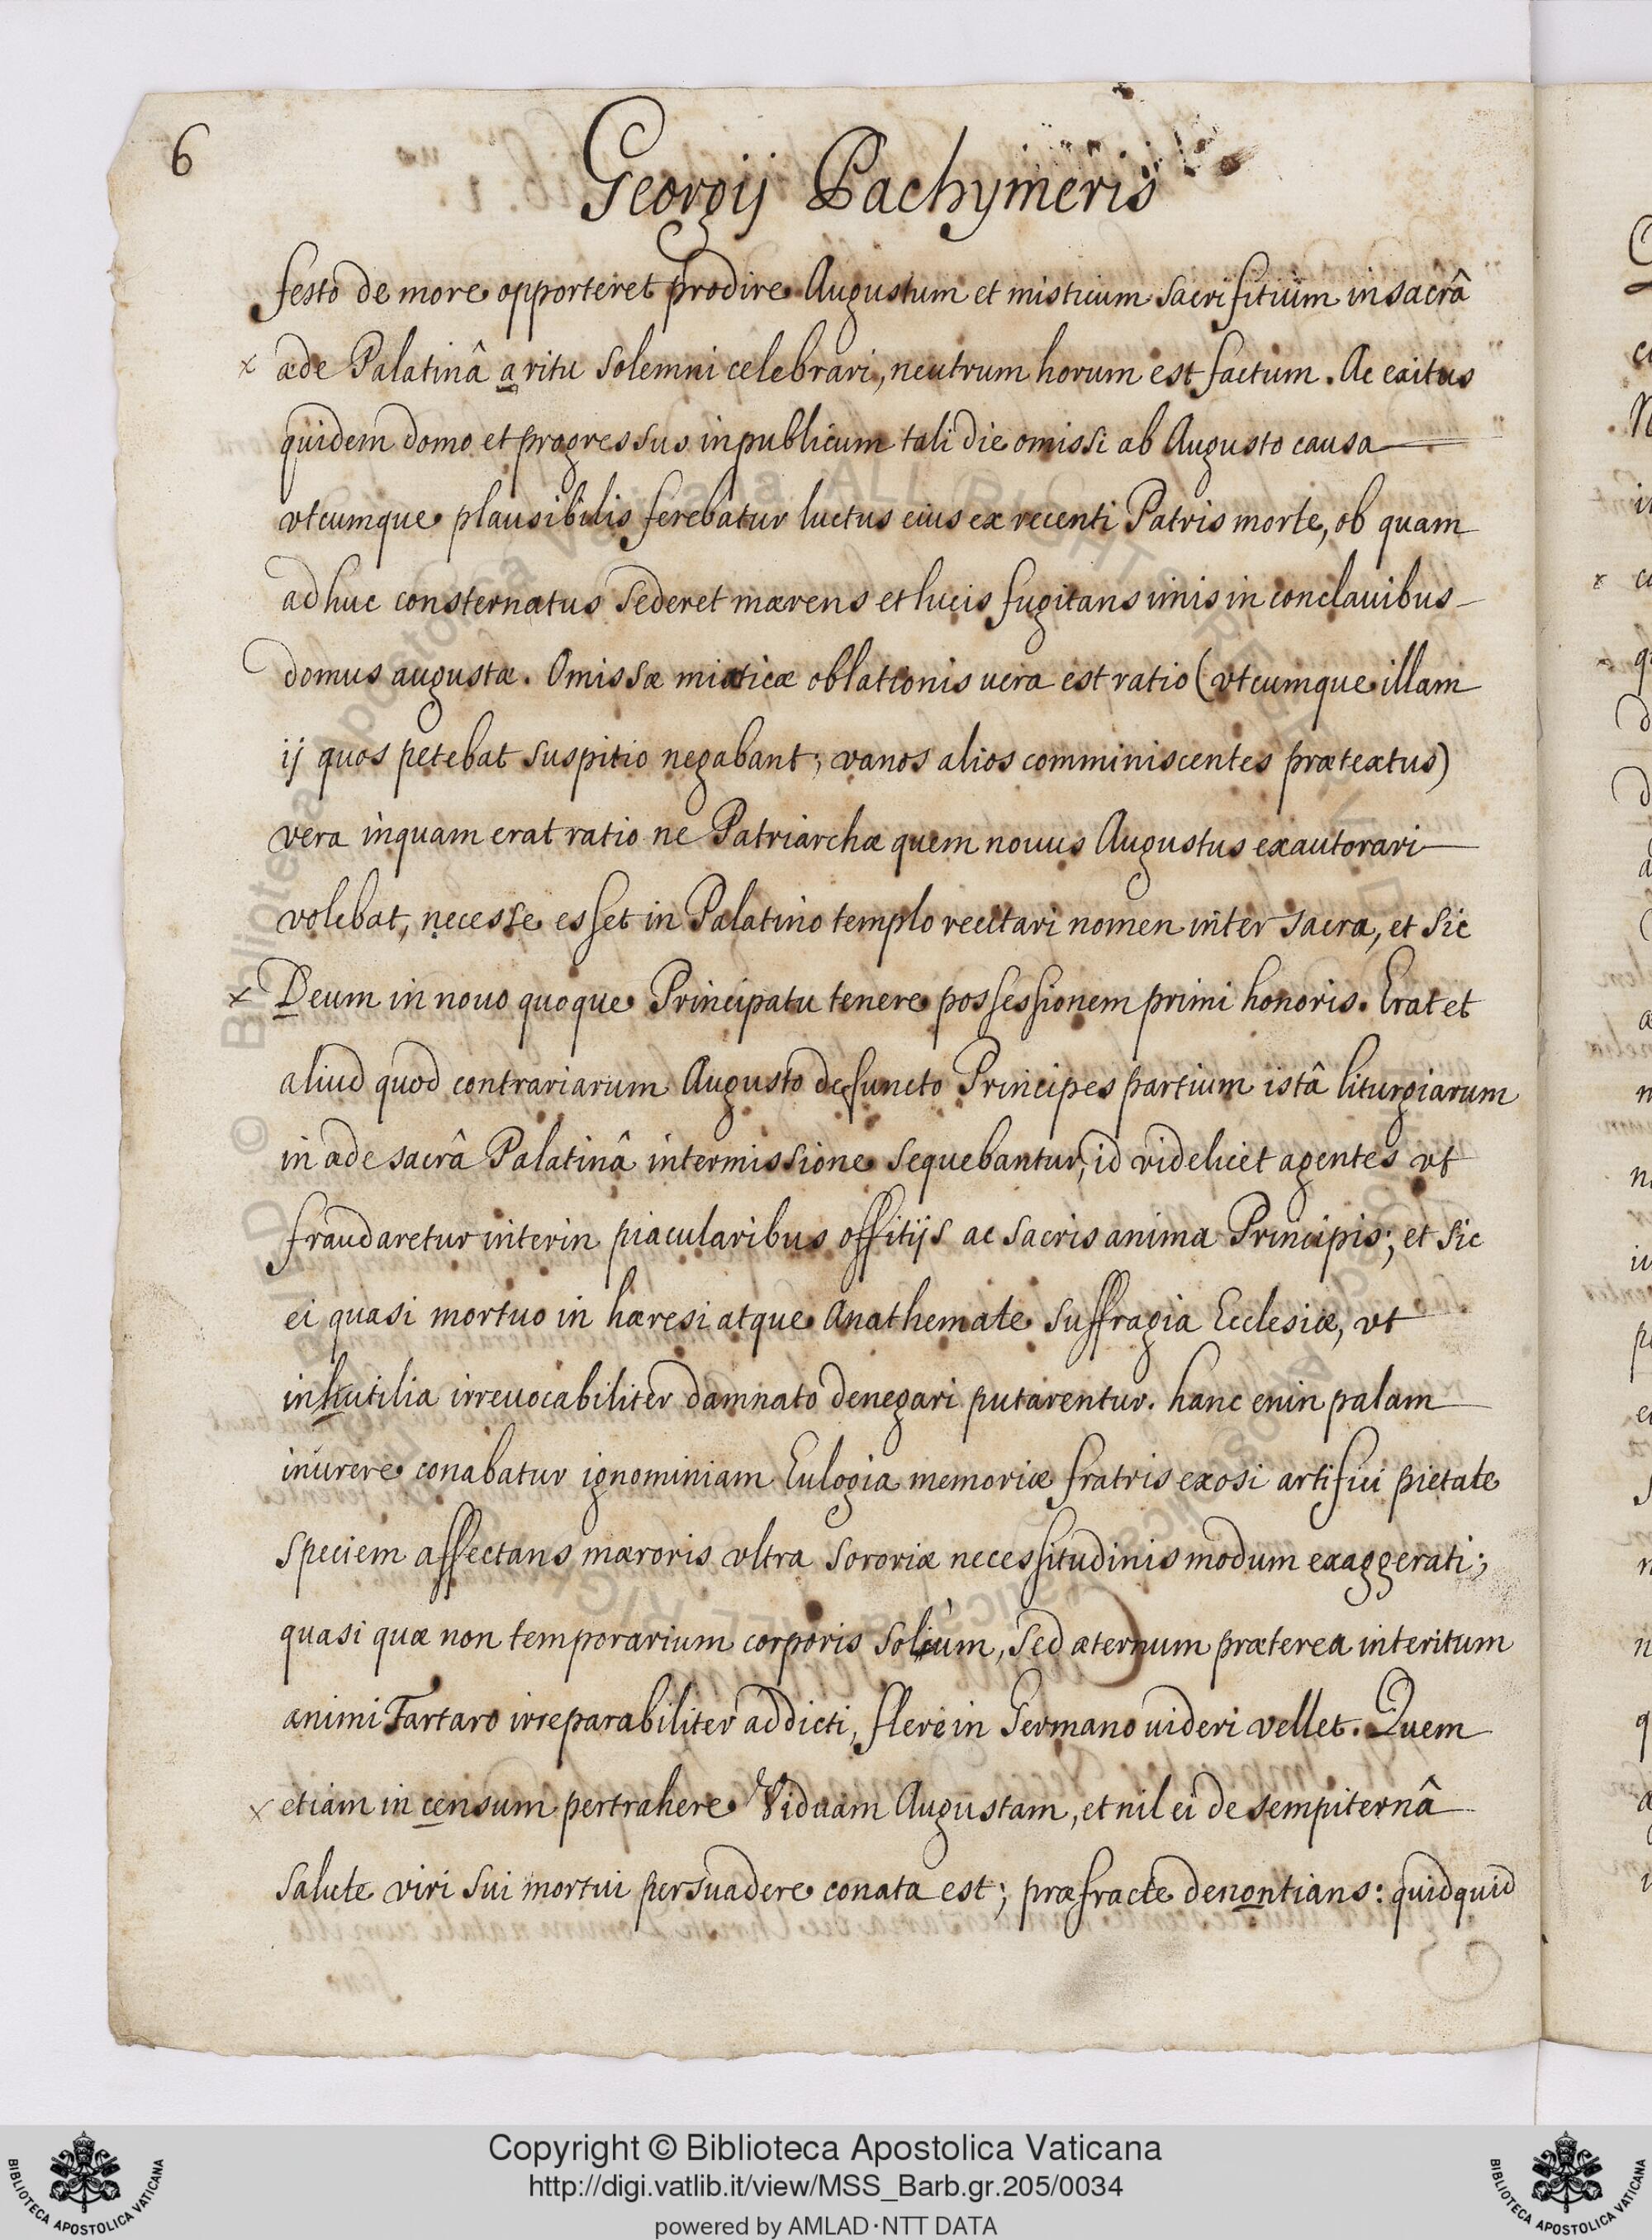 6
Georgij Pachymeris
festo de more opporteret prodire Augustum et misticum sacrifitium in sacrâ
x æde Palatinâ a ritu solemni celebrari, neutrum horum est factum. Ac exitus
quidem domo et progressus in publicum tali die omissi ab Augusto causa
vtcumque plausibilis ferebatur luctus eius ex recenti Patris morte, ob quam
adhuc consternatus sederet mærens et lucis fugitans imis in conclauibus
domus augustæ. Omissæ misticæ oblationis uera est ratio (vtcumque illam
ij quos petebat suspitio negabant; vanos alios comminiscentes prætextus)
vera inquam erat ratio ne Patriarchæ quem nouus Augustus exautorari
volebat, necesse esset in Palatino templo recitari nomen inter sacra, et sic
x Deum in nouo quoque Principatu tenere possessionem primi honoris. Erat et
aliud quod contrariarum Augusto defuncto Principes partium istâ liturgiarum
in æde sacrâ Palatinâ intermissione sequebantur, id videlicet agentes vt
fraudaretur interin piacularibus offitijs ac sacris anima Principis; et sic
ei quasi mortuo in hæresi atque Anathemate suffragia Ecclesiæ, vt
inhutilia irreuocabiliter damnato denegari putarentur. hanc enin palam
inurere conabatur ignominiam Eulogia memoriæ fratris exosi artifici pietate
speciem affectans mæroris vltra sororiæ necessitudinis modum exaggerati;
quasi quæ non temporarium corporis solùm, sed æternum præterea interitum
animi Tartaro irreparabiliter addicti, flere in Germano uideri vellet. Quem
x etiam in censum pertrahere Viduam Augustam, et nil ei de sempiternâ
salute viri sui mortui persuadere conata est; præfracte denontians: quidquid
Copyright © Biblioteca Apostolica Vaticana
http://digi.vatlib.it/view/MSS_Barb.gr.205/0034
powered by AMLAD·NTT DATA
BIBLIOTECA APOSTOLICA VATICANA
BIBLIOTECA APOSTOLICA VATICANA